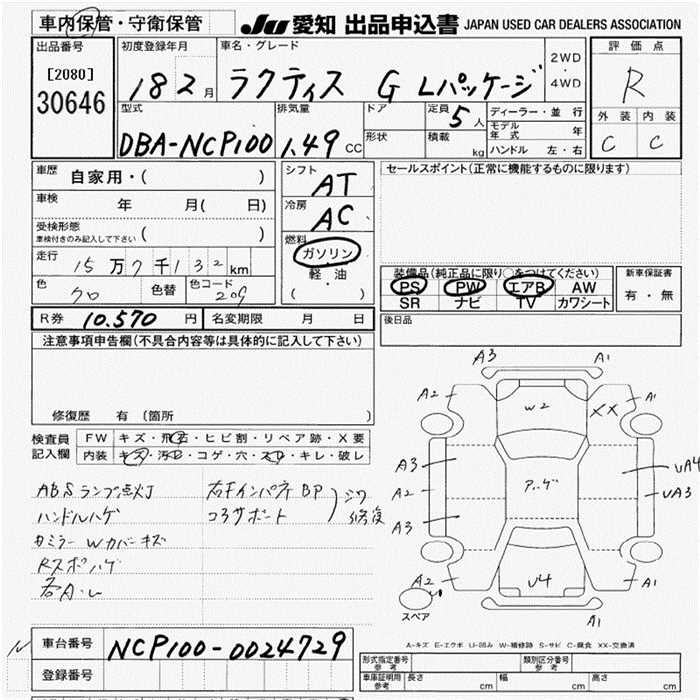 車内保管・守衛保管 JU 愛知 出品申込書 JAPAN USED CAR DEALERS ASSOCIATION
出品番号 初度登録年月 車名・グレード 2WD・4WD 評価点
[2080] 18 2月 ラクティス G Lパッケージ R
30646
型式 排気量 ドア 定員 5人 ディーラー・並行 外装 内装
DBA-NCP100 1.49cc 形状 積載 kg モデル年式 年 C C
ハンドル 左・右
車歴 自家用・( ) シフト AT セールスポイント(正常に機能するものに限ります)
車検 年 月( 日) 冷房 AC
受検形態 ( )
車検付きのみ記入して下さい
燃料 ガソリン
走行 15万7千132km 軽・油
( )
色 クロ 色替 色コード 209
装備品(純正品に限り○をつけてください) 新車保証書
PS PW エアB AW 有・無
SR ナビ TV カワシート
R券 10.570円 名変期限 月 日 後日品
注意事項申告欄(不具合内容等は具体的に記入して下さい)
修復歴 有(箇所 )
検査員 FW キズ・飛石・ヒビ割・リペア跡・X要
記入欄 内装 キズ・汚れ・コゲ・穴・スレ・キレ・破レ
ABSランプ点灯 右Fインパネ BP
ハンドルハゲ コアサポート シワ修復
Wカバーキズ
Rスポハゲ
各A・U
A3 A1
A2 W2 XX A1
A3 UA4
A2 UA3
A3
A2 U4 A1
スペア A1
A-キズ E-エクボ U-凹み W-補修跡 S-サビ C-腐食 XX-交換済
車台番号 NCP100-0024729
登録番号
形式指定番号 参考 類別区分番号 参考
車庫証明用 参考 長さ cm 幅 cm 高さ cm